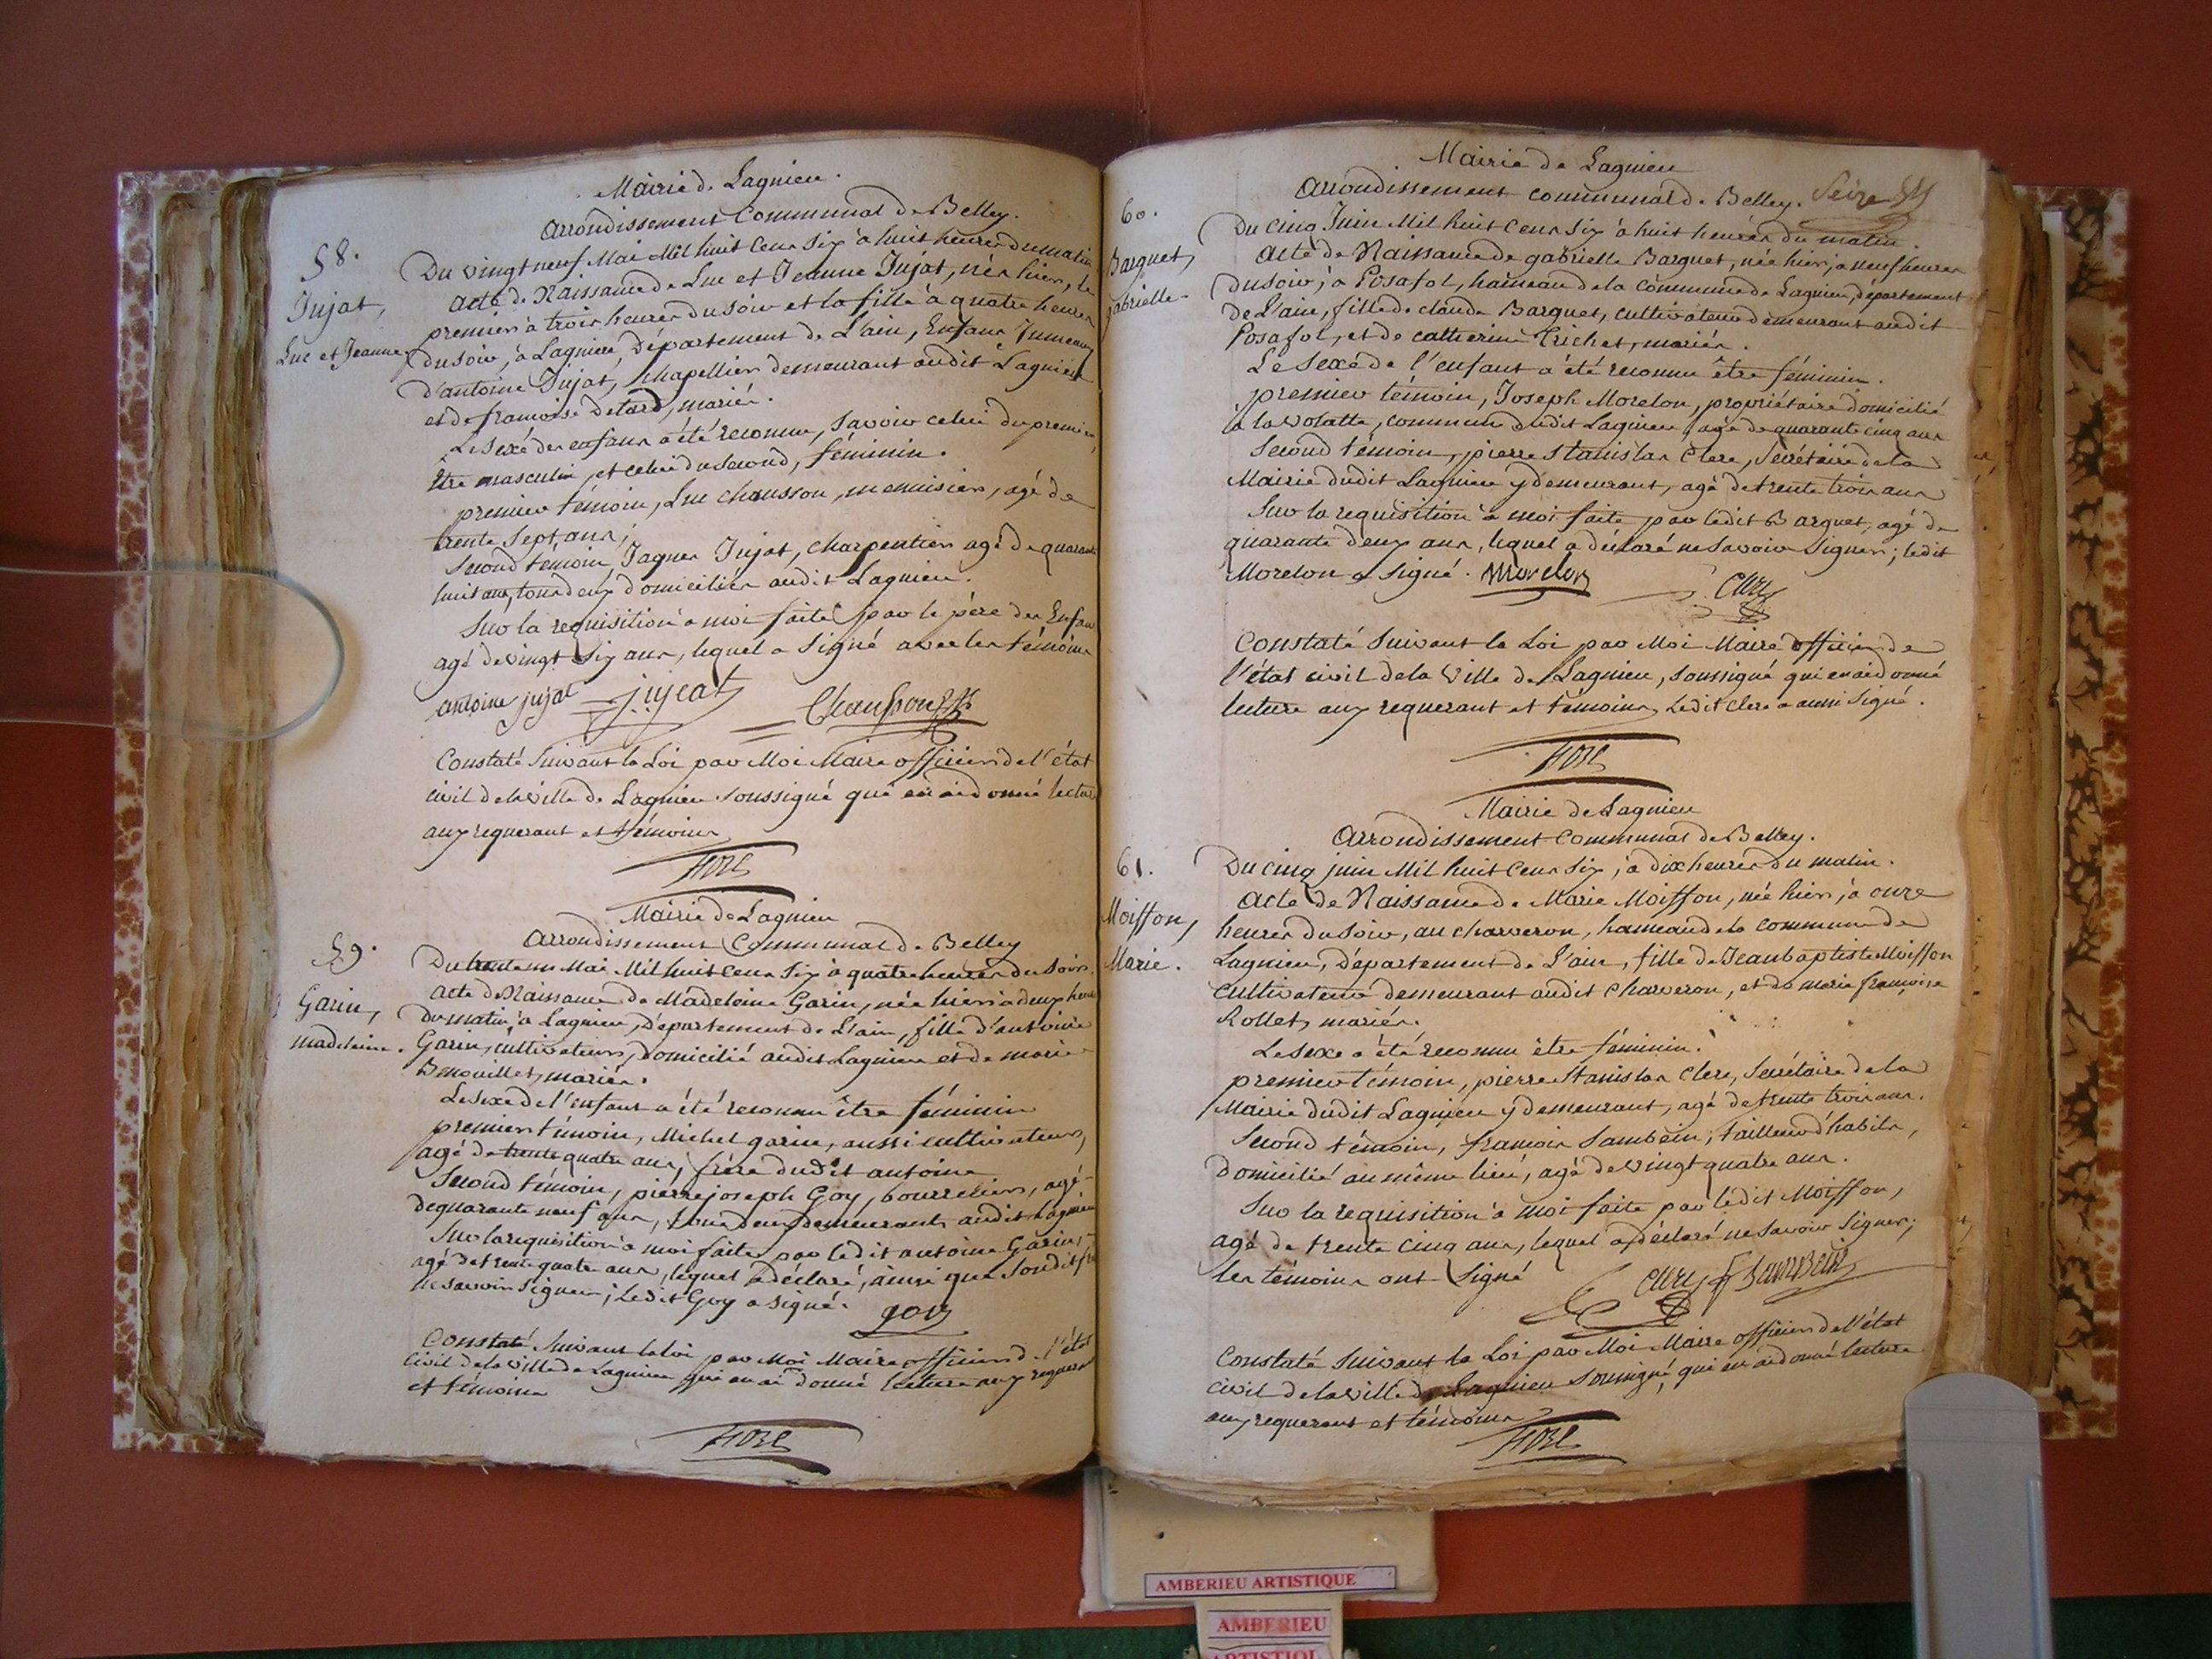 Mairie de Lagnieu.
Arrondissement Communal de Belley.
58.
Jujat,
Luc et Jeanne
Du vingt neuf Mai Mil huit cens six à huit heures du matin
Acte de Naissance de Luc et Jeanne Jujat, nés hier, le
premier à trois heures du soir et la fille à quatre heures
du soir, à Lagnieu, Département de L'ain, Enfans Jumeaux
d'antoine Jujat, chapellier demeurant audit Lagnieu
et de francoise Detard, mariés.
Le sexe des enfans a été reconnu, savoir celui du premier,
Être masculin, et celui du second, féminin.
premier témoin, Luc chausson, menuisier, agé de
trente sept ans;
Second témoin Jaques Jujat, charpentier agé de quarante
huit ans, tous deux domiciliés audit Lagnieu.
Sur la requisition à moi faite par le père des Enfans
agé de vingt six ans, lequel a signé avec les témoins
antoine jujat jujeat Chausson
Constaté suivant la Loi par Moi Maire officier de l'état
civil de la ville de Lagnieu soussigné qui en ai donné lecture
aux requerant et témoins
Mairie de Lagnieu
Arrondissement Communal de Belley
59.
Garin,
madeleine.
Du trente un Mai Mil huit cens six à quatre heures du soir.
Acte de Naissance de Madeleine Garin, née hier à deux heures
du matin, à Lagnieu, Département de L'ain, fille d'antoine
Garin, cultivateur, domicilié audit Lagnieu et de marie
mariés.
Le sexe de l'enfant a été reconnu être féminin
premier témoin, Michel garin, aussi cultivateur,
agé de trente quatre ans, frère dudit antoine
Second témoin, pierre joseph Goy, bourrelier, agé
de quarante neuf ans, tous deux demeurants audit Lagnieu
Sur la requisition à moi faite par ledit antoine Garin,
agé de trente quatre ans, lequel a déclaré, ainsi que sondit
ne savoir signer; Ledit Goy a signé.
goy
Constaté suivant la loi par Moi Maire officier de l'état
civil de la ville de Lagnieu qui en ai donné lecture aux requerant
et témoins
Mairie de Lagnieu
Arrondissement communal de Belley. Seize
60.
Barquet,
gabrielle.
Du cinq Juin Mil huit cens six à huit heures du matin.
Acte de Naissance de gabrielle Barquet, née hier, à neuf heures
du soir, à Posafol, hameau de la commune de Lagnieu, département
de L'ain, fille de claude Barquet, cultivateur demeurant audit
Posafol, et de catherine Trichet, mariés.
Le sexe de l'enfant a été reconnu être féminin.
premier témoin, Joseph Morelon, propriétaire domicilié
à la Volatte, commune dudit Lagnieu, agé de quarante cinq ans
Second témoin, pierre stanislas Clerc, Secrétaire de la
Mairie dudit Lagnieu y demeurant, agé de trente trois ans
Sur la requisition à moi faite par ledit Barquet, agé de
quarante deux ans, lequel a déclaré ne savoir signer; ledit
Morelon a signé. Morelon Clerc
Constaté suivant la Loi par Moi Maire officier de
l'état civil de la Ville de Lagnieu, soussigné qui en ai donné
lecture aux requerant et témoins, Ledit clerc a aussi signé.
Mairie de Lagnieu
Arrondissement Communal de Belley.
61.
Moiffon,
Marie.
Du cinq juin Mil huit cens six, à dix heures du matin.
Acte de Naissance de Marie Moiffon, née hier, à onze
heures du soir, au charveron, hameau de la commune de
Lagnieu, Département de L'ain, fille de Jean baptiste Moiffon
cultivateur demeurant audit charveron, et de marie françoise
Rollet, mariés.
Le sexe a été reconnu être féminin.
premier témoin, pierre Stanislas Clerc, Secrétaire de la
Mairie dudit Lagnieu y demeurant, agé de trente trois ans.
Second témoin, francois Sambein, tailleur d'habits,
domicilié au même lieu, agé de vingt quatre ans.
Sur la requisition à moi faite par ledit Moiffon,
agé de trente cinq ans, lequel a déclaré ne savoir signer;
les témoins ont signé Clerc f Sambein
Constaté suivant la Loi par Moi Maire officier de l'état
civil de la ville de Lagnieu soussigné, qui en ai donné lecture
aux requerant et témoins
AMBERIEU ARTISTIQUE
AMBERIEU